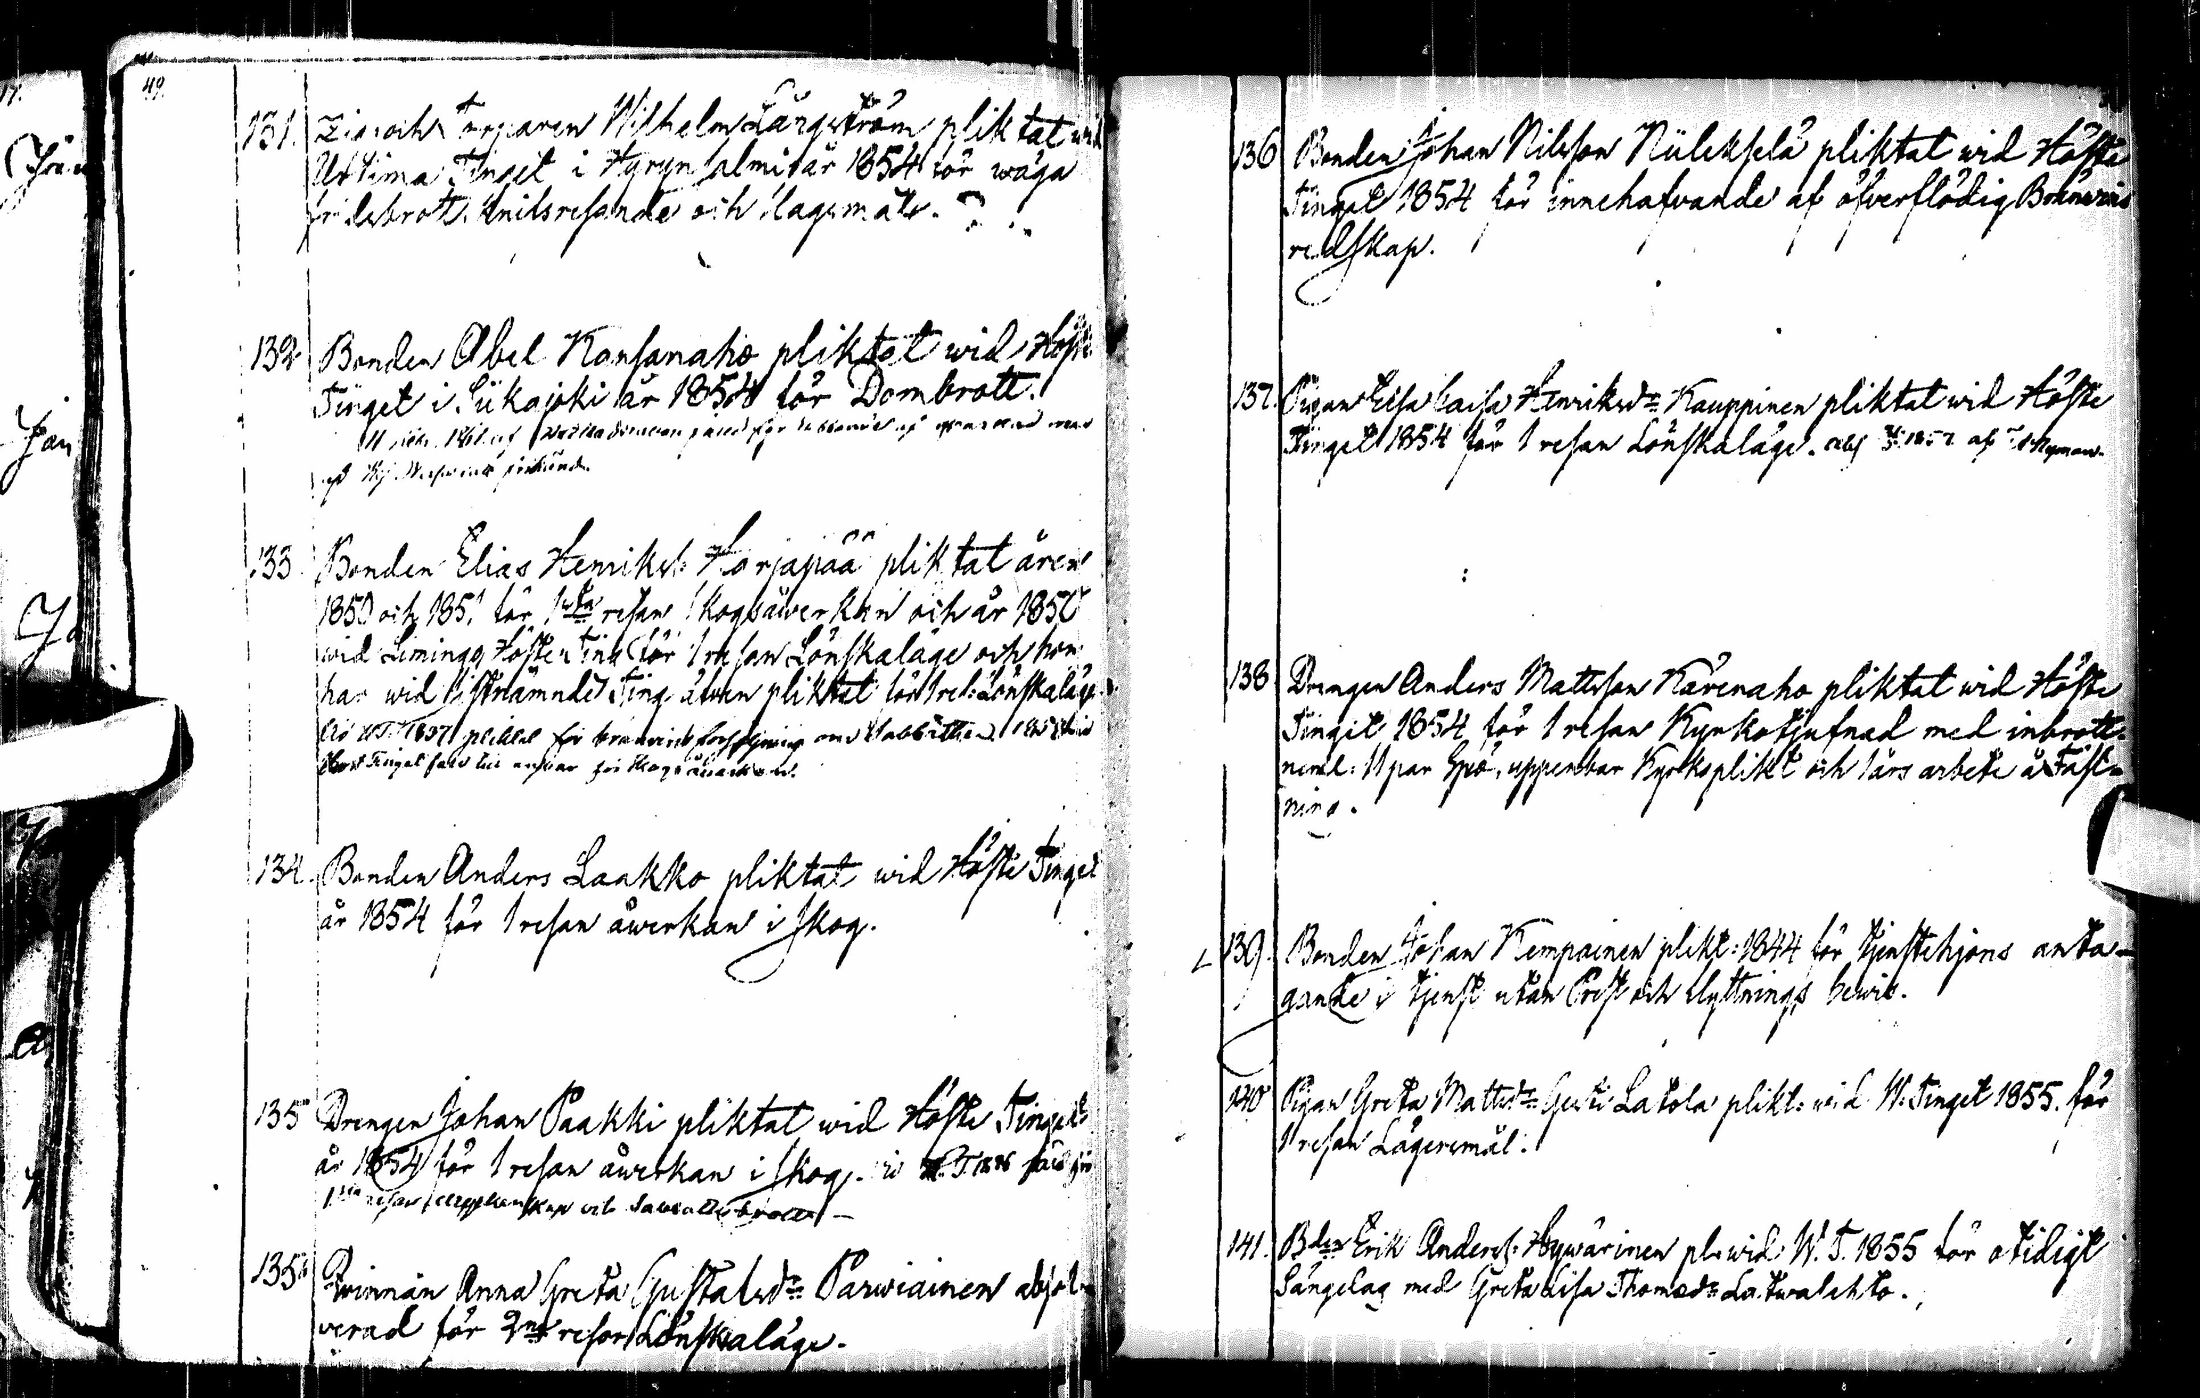 49.
131. och Torparen Wilhelm Längström pliktat wid
Urtima Tinget i Hyrynsalmi år 1854 för wåga
fridsbrott, knifsresande och slagsmål.
132 Bonden Abel Kansanaho pliktat wid Höste
Tinget i Siikajoki år 1854 för Dombrott.
133 Bonden Elias Henriks: Harjapää pliktat åren
1850 och 1851 för 1sta resan skogsåwerkan och år 1850
wid Limingo Höste Ting för 1 resan Lönskaläge och hon
har wid sistnämnde Ting äfwen pliktat för 1 res: Lönskaläge
1857 pliktat för bränvins försäljning om Sabbathen
Höst Tinget för skogsåwerkan.
134. Bonden Anders Laakko pliktat wid Höste Tinget
år 1854 för 1 resan åwerkan i skog.
135 Drengen Johan Paakki pliktat wid Höste Tinget
år 1854 för 1 resan åwerkan i skog.
1sta resan och Sabbatsbrott —
135 Qvinnan Anna Greta Gustafsdr Parwiainen absol-
verad för 2ne resor Lönskaläge.
136 Bonden Johan Nilsson Niilekselä pliktat wid Höste
Tinget 1854 för innehafvande af öfverflödig Bränwins
redskap.
137. Pigan Lisa Caisa Henriksdr Kauppinen pliktat wid Höste
Tinget 1854 för 1 resan Lönskaläge. abs 1857 af Nyman.
138 Drengen Anders Mattsson Kärenaho pliktat wid Höste
Tinget 1854 för 1 resan Kyrkotjufnad med inbrott
neml: 11 par Spö, uppenbar Kyrkoplikt och 1 års arbete å Fäst-
ning.
139. Bonden Johan Kempainen plikt: 1844 för tjenstehjons anta-
gande i tjenst utan Prest och flyttnings bewis.
140 Pigan Greta Mattsdr Latola plikt: wid W. Tinget 1855. för
1 resan Lägersmål.
141. Bden Erik Anders: Hywärinen pl. wid W. T. 1855 för otidigt
Sängelag med Greta Lisa Thomasdr Latwalehto.